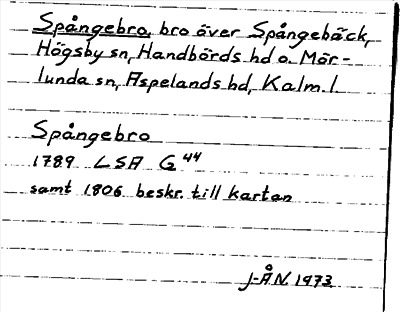 Spångebro, bro över Spångebäck,
Högsby sn, Handbörds hd o. Mör-
lunda sn, Aspelands hd, Kalm. l.
Spångebro
1789 LSA G 44
samt 1806 beskr. till kartan
J-ÅN. 1973